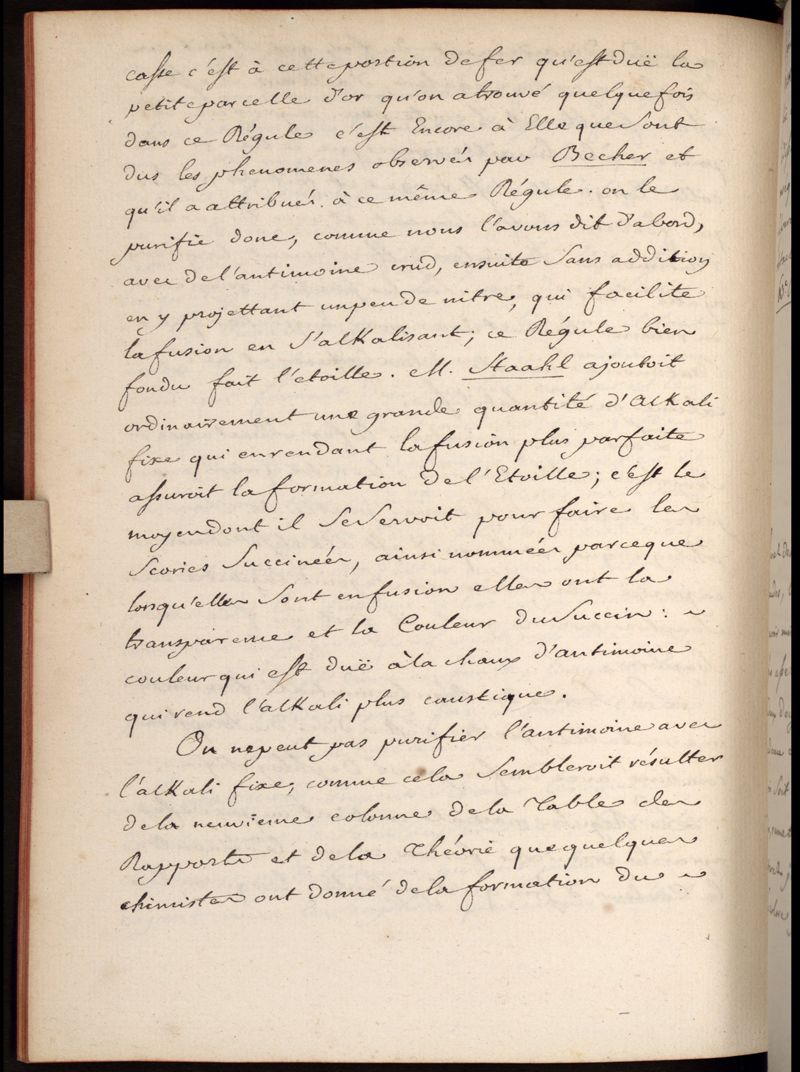 casse c'est à cette portion de fer qu'est duë la
petite parcelle d'or qu'on a trouvé quelque fois
dans ce Régule c'est Encore à Elle que Sont
dus les phenomenes observés par Becher et
qu'il a attribués. à ce même Régule. on le
purifie donc, comme nous l'avons dit d'abord,
avec de l'antimoine crud, ensuite Sans addition
en y projettant un peu de nitre, qui facilite
la fusion en S'alKalisant; ce Régule bien
fondu fait l'etoille. M. Staahl ajoutoit
ordinairement une grande quantité d'alKali
fixe qui en rendant la fusion plus parfaite
assuroit la formation de l'Etoille; c'est le
moyen dont il Se Servoit pour faire les
Scories Succinées, ainsi nommées parceque
lorsqu'elles Sont en fusion elles ont la
transparence et la Couleur du Succin: ~
couleur qui est duë à la chaux d'antimoine
qui rend l'alKali plus caustique.
On ne peut pas purifier l'antimoine avec
l'alKali fixe, comme cela Sembleroit résulter
de la neuvieme colonne de la Table des
Rapports et de la Théorie que quelques
chimistes ont donné de la formation du ~